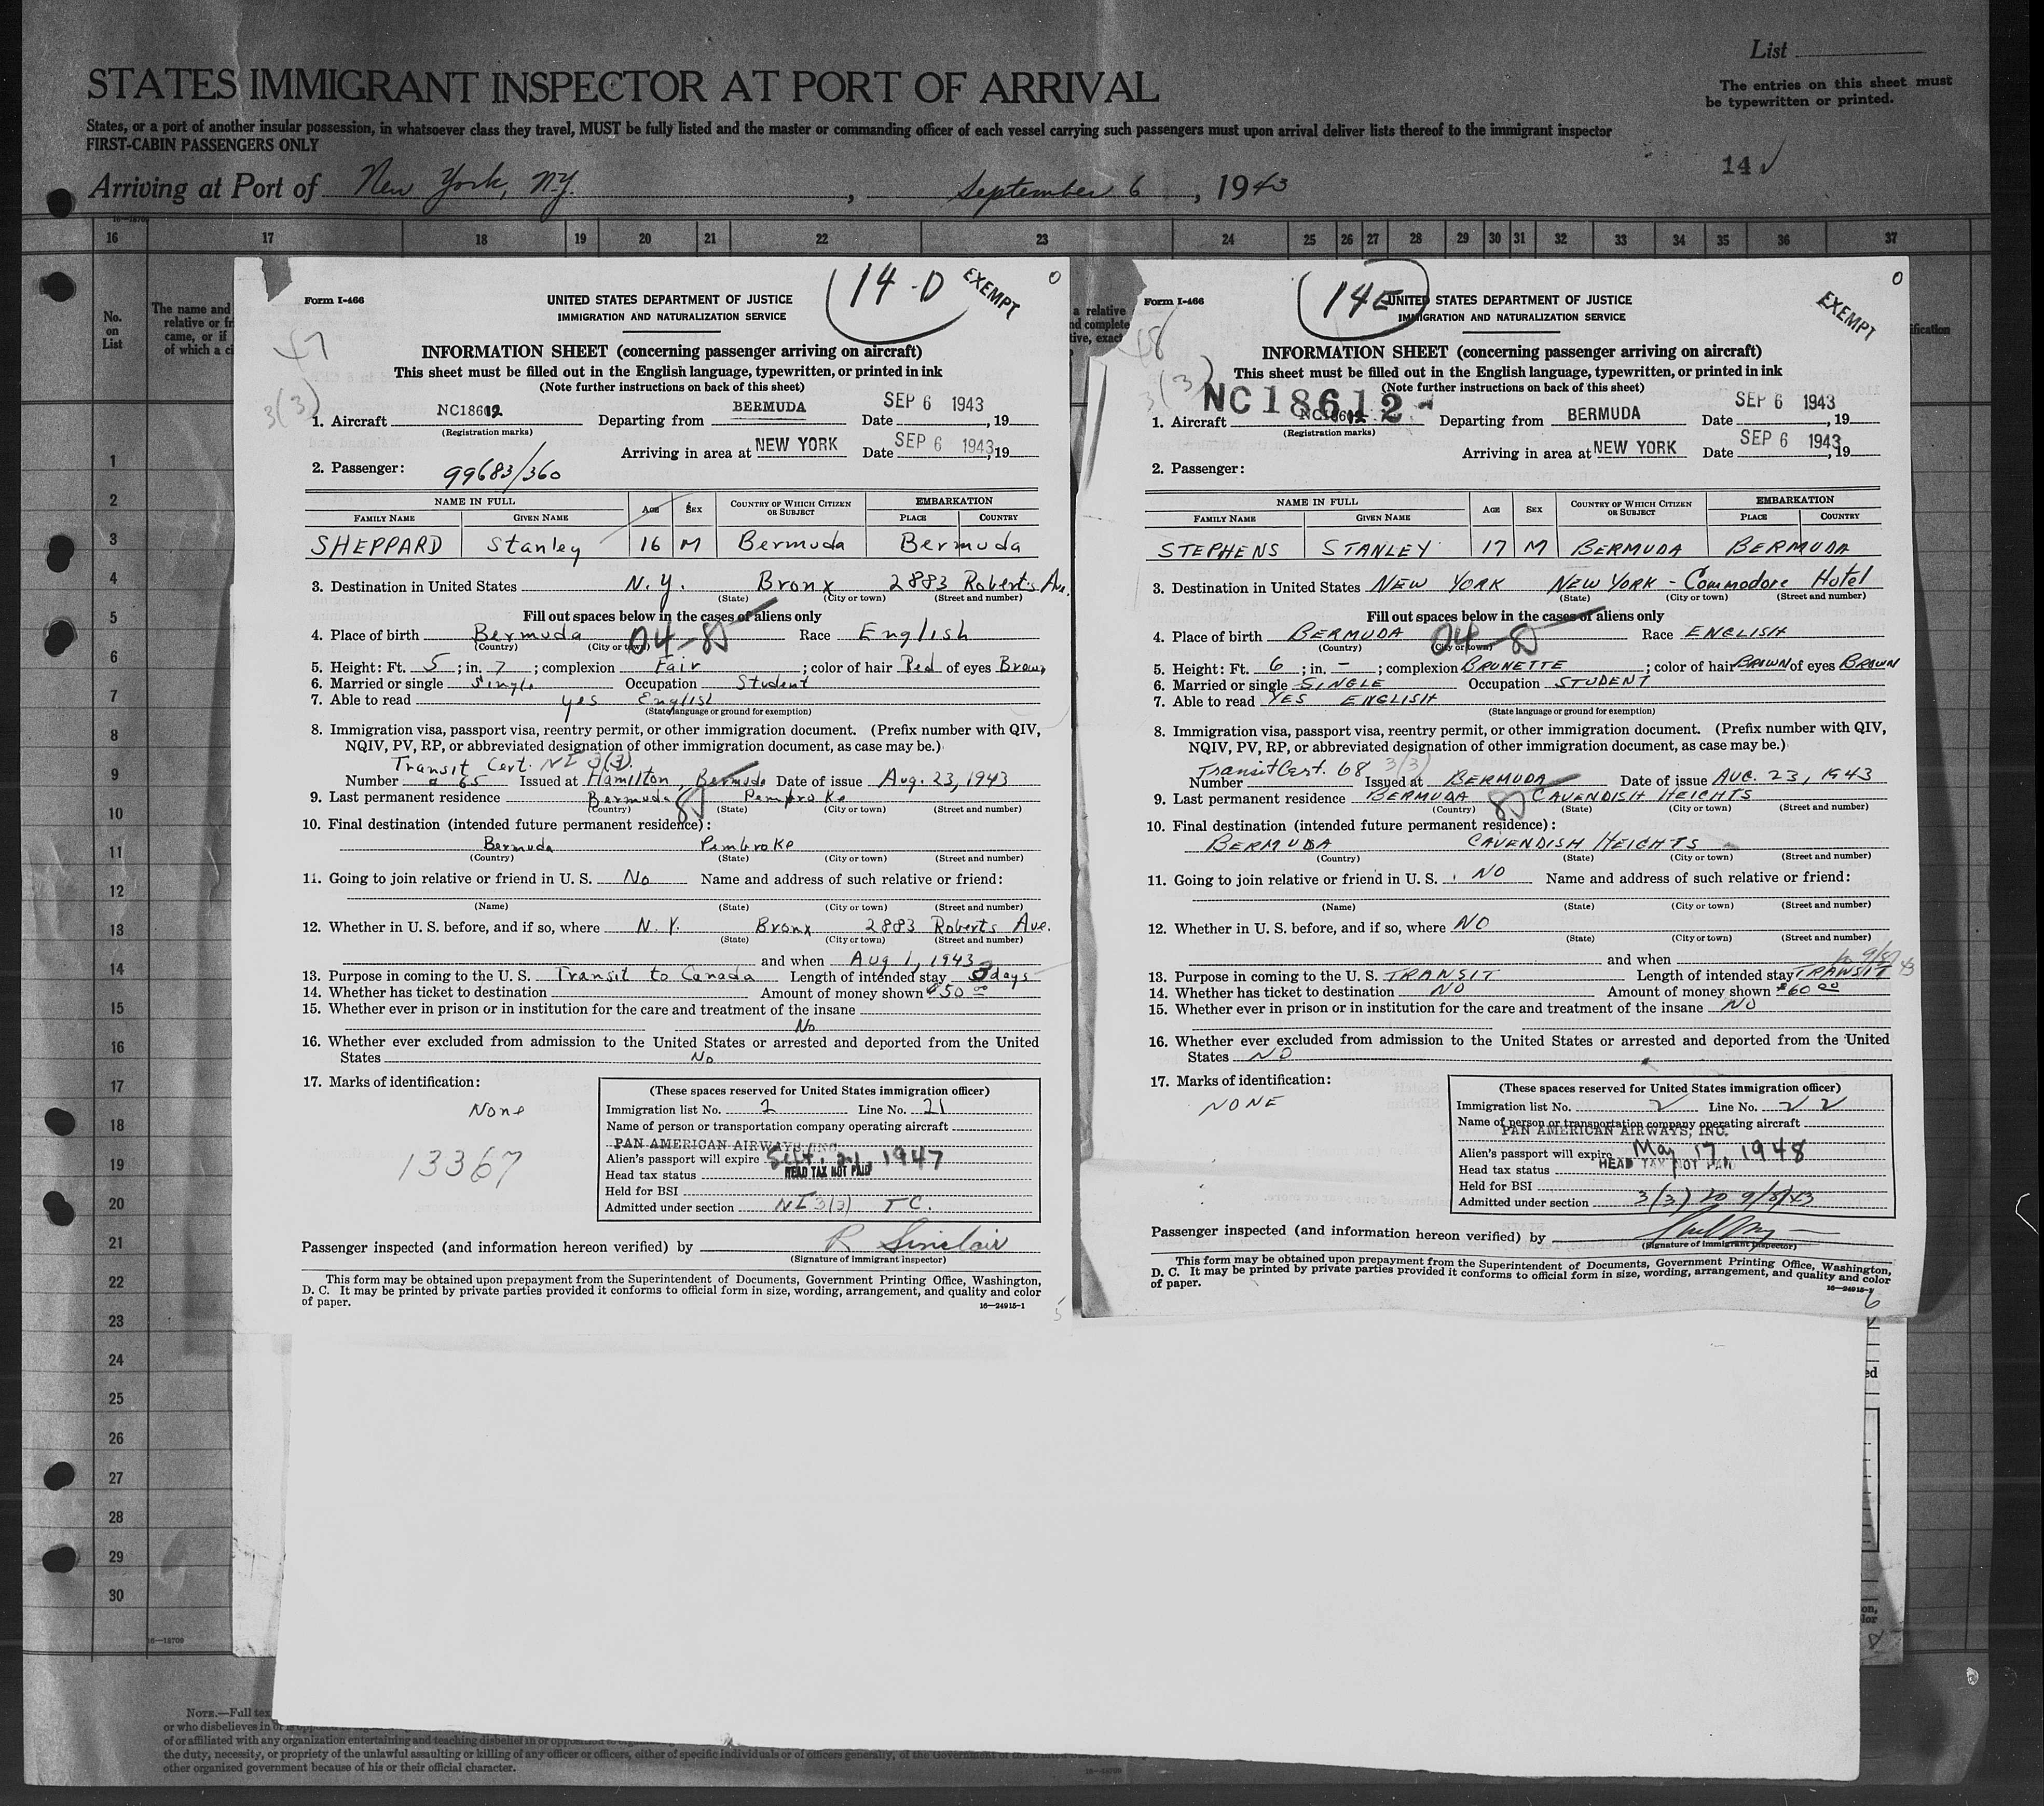 List
STATES IMMIGRANT INSPECTOR AT PORT OF ARRIVAL
The entries on this sheet must
be typewritten or printed.
States, or a port of another insular possession, in whatsoever class they travel, MUST be fully listed and the master or commanding officer of each vessel carrying such passengers must upon arrival deliver lists thereof to the immigrant inspector
FIRST-CABIN PASSENGERS ONLY
14 ✓
Arriving at Port of New York, N.Y. , September 6, 1943
16 17 18 19 20 21 22 23 24 25 26 27 28 29 30 31 32 33 34 35 36 37
No.
on
List
The name and
relative or fr
came, or if
of which a ci
1
2
3
4
5
6
7
8
9
10
11
12
13
14
15
16
17
18
19
20
21
22
23
24
25
26
27
28
29
30
16—18709
14-D
EXEMPT
0
Form I-466
UNITED STATES DEPARTMENT OF JUSTICE
IMMIGRATION AND NATURALIZATION SERVICE
47
INFORMATION SHEET (concerning passenger arriving on aircraft)
This sheet must be filled out in the English language, typewritten, or printed in ink
(Note further instructions on back of this sheet)
3(3)
1. Aircraft NC18612 Departing from BERMUDA Date SEP 6 1943, 19
(Registration marks)
Arriving in area at NEW YORK Date SEP 6 1943, 19
2. Passenger: 99683/360
NAME IN FULL AGE SEX COUNTRY OF WHICH CITIZEN OR SUBJECT EMBARKATION
FAMILY NAME GIVEN NAME PLACE COUNTRY
SHEPPARD Stanley 16 M Bermuda Bermuda
3. Destination in United States N.Y. Bronx 2883 Roberts Av.
(State) (City or town) (Street and number)
Fill out spaces below in the cases of aliens only
4. Place of birth Bermuda 04-85 Race English
(Country) (City or town)
5. Height: Ft. 5; in. 7; complexion Fair; color of hair Red of eyes Brown
6. Married or single Single Occupation Student
7. Able to read yes English
(State language or ground for exemption)
8. Immigration visa, passport visa, reentry permit, or other immigration document. (Prefix number with QIV,
NQIV, PV, RP, or abbreviated designation of other immigration document, as case may be.)
Transit Cert. NI 3(3).
Number # 65 Issued at Hamilton, Bermuda Date of issue Aug. 23, 1943
9. Last permanent residence Bermuda 85 Pembroke
(Country) (State) (City or town) (Street and number)
10. Final destination (intended future permanent residence):
Bermuda Pembroke
(Country) (State) (City or town) (Street and number)
11. Going to join relative or friend in U. S. No Name and address of such relative or friend:
(Name) (State) (City or town) (Street and number)
12. Whether in U. S. before, and if so, where N.Y. Bronx 2883 Roberts Ave.
(State) (City or town) (Street and number)
and when Aug 1, 1943
13. Purpose in coming to the U. S. Transit to Canada Length of intended stay 3 days
14. Whether has ticket to destination Amount of money shown $50 00
15. Whether ever in prison or in institution for the care and treatment of the insane
No
16. Whether ever excluded from admission to the United States or arrested and deported from the United
States No
17. Marks of identification:
None
13367
(These spaces reserved for United States immigration officer)
Immigration list No. 2 Line No. 21
Name of person or transportation company operating aircraft
PAN AMERICAN AIRWAYS, INC.
Alien's passport will expire Sept. 21, 1947
Head tax status HEAD TAX NOT PAID
Held for BSI
Admitted under section NI 3(3) TC.
Passenger inspected (and information hereon verified) by R Sinclair
(Signature of immigrant inspector)
This form may be obtained upon prepayment from the Superintendent of Documents, Government Printing Office, Washington,
D. C. It may be printed by private parties provided it conforms to official form in size, wording, arrangement, and quality and color
of paper.
16—24915-1
5
a relative
nd complete
tive, exact
14E
EXEMPT
0
ification
Form I-466
UNITED STATES DEPARTMENT OF JUSTICE
IMMIGRATION AND NATURALIZATION SERVICE
48
INFORMATION SHEET (concerning passenger arriving on aircraft)
This sheet must be filled out in the English language, typewritten, or printed in ink
(Note further instructions on back of this sheet)
3(3)
NC18612
1. Aircraft Departing from BERMUDA Date SEP 6 1943, 19
(Registration marks)
Arriving in area at NEW YORK Date SEP 6 1943, 19
2. Passenger:
NAME IN FULL AGE SEX COUNTRY OF WHICH CITIZEN OR SUBJECT EMBARKATION
FAMILY NAME GIVEN NAME PLACE COUNTRY
STEPHENS STANLEY 17 M BERMUDA BERMUDA
3. Destination in United States NEW YORK NEW YORK - Commodore Hotel
(State) (City or town) (Street and number)
Fill out spaces below in the cases of aliens only
4. Place of birth BERMUDA 04-85 Race ENGLISH
(Country) (City or town)
5. Height: Ft. 6; in. -; complexion BRUNETTE; color of hair BROWN of eyes BROWN
6. Married or single SINGLE Occupation STUDENT
7. Able to read YES ENGLISH
(State language or ground for exemption)
8. Immigration visa, passport visa, reentry permit, or other immigration document. (Prefix number with QIV,
NQIV, PV, RP, or abbreviated designation of other immigration document, as case may be.)
Transit Cert. 68 3(3)
Number Issued at BERMUDA Date of issue AUG. 23, 1943
9. Last permanent residence BERMUDA 85 CAVENDISH HEIGHTS
(Country) (State) (City or town) (Street and number)
10. Final destination (intended future permanent residence):
BERMUDA CAVENDISH HEIGHTS
(Country) (State) (City or town) (Street and number)
11. Going to join relative or friend in U. S. NO Name and address of such relative or friend:
(Name) (State) (City or town) (Street and number)
12. Whether in U. S. before, and if so, where NO
(State) (City or town) (Street and number)
and when to 9/8/43
13. Purpose in coming to the U. S. TRANSIT Length of intended stay TRANSIT
14. Whether has ticket to destination NO Amount of money shown $60 00
15. Whether ever in prison or in institution for the care and treatment of the insane NO
16. Whether ever excluded from admission to the United States or arrested and deported from the United
States NO
17. Marks of identification:
NONE
(These spaces reserved for United States immigration officer)
Immigration list No. 2 Line No. 22
Name of person or transportation company operating aircraft
PAN AMERICAN AIRWAYS, INC.
Alien's passport will expire May 17, 1948
Head tax status HEAD TAX NOT PAID
Held for BSI
Admitted under section 3(3) to 9/8/43
Passenger inspected (and information hereon verified) by
(Signature of immigrant inspector)
This form may be obtained upon prepayment from the Superintendent of Documents, Government Printing Office, Washington,
D. C. It may be printed by private parties provided it conforms to official form in size, wording, arrangement, and quality and color
of paper.
16—24915-1
6
ed
on,
lor
NOTE.—Full tex
or who disbelieves in or is opposed
of or affiliated with any organization entertaining and teaching disbelief in or opposition
the duty, necessity, or propriety of the unlawful assaulting or killing of any officer or officers, either of specific individuals or of officers generally, of the Government of the United
other organized government because of his or their official character.